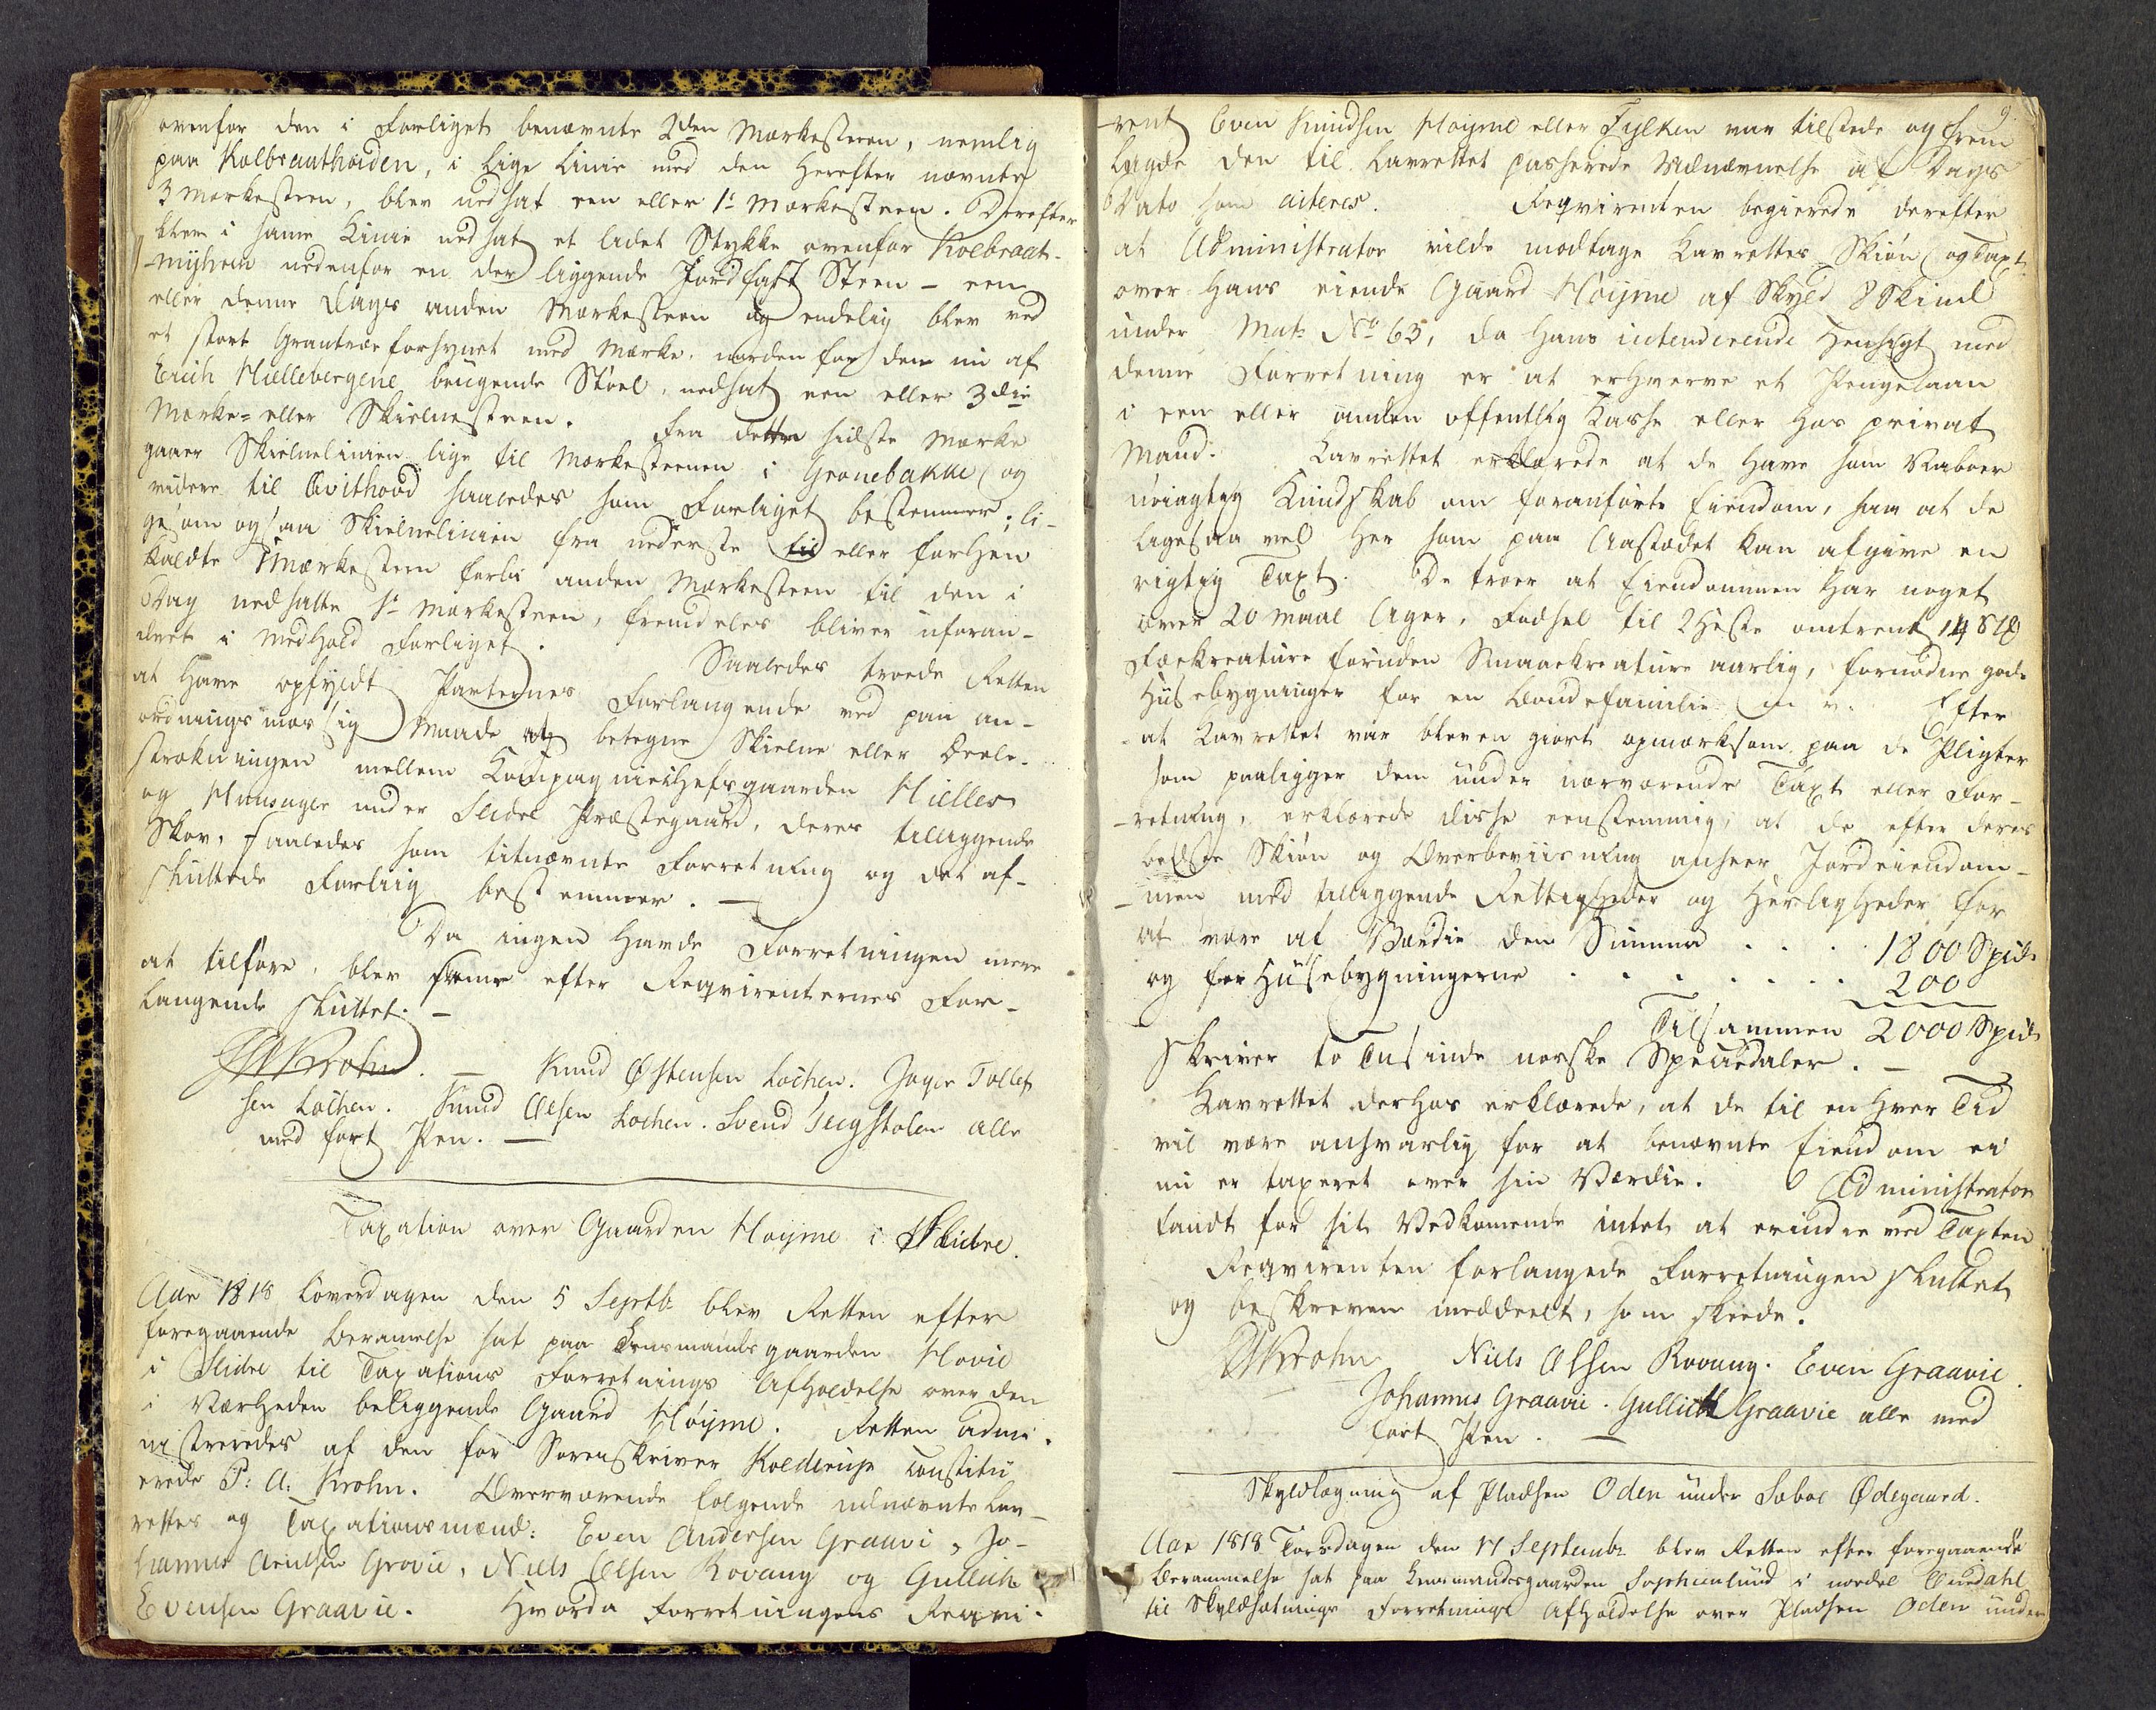 ovenfor den i Forliget benævnte 2den Mærkesteen, nemlig
paa Kolbraathøiden, i lige Linie med den herefter nævnte
3 Mærkesteen, blev nedsat een eller 1ste Mærkesteen. Derefter
blev i samme Linie nedsat et lidet Stykke ovenfor Kolbraat-
-myhren nedenfor en der liggende Jordfast Steen - een
eller denne Dags anden Mærkesteen og endelig blev ved
et stort Grantræe forsynet med Mærke, norden for den nu af
Erich Hiellebergene beugende Støel, nedsat een eller 3die
Mærke- eller Skielnesteen. Fra dette sidste Mærke
gaaer Skielnelinien lige til Mærkesteenen i Gronebakke og
videre til Qvithovd saaledes som Forliget bestemmer; li-
gesom ogsaa Skielnelinien fra nederste til eller forhen
kaldte Mærkesteen forbi anden Mærkesteen til den i
Dag nedsatte 1ste Mærkesteen, fremdeles bliver uforan-
dret i Medhold Forliget.
Saaledes troede Retten
at have opfyldt Parternes Forlangende ved paa an-
ordningsmæssig Maade at betegne Skielne eller Deele-
strækningen mellem Kompagniechefsgaarden Hielles
og Hunsager under Slidre Præstegaard, deres tilliggende
Skov, saaledes som titnævnte Forretning og det af-
sluttede Forliig bestemmer. -
Da ingen havde Forretningen mere
at tilføre, blev samme efter Reqvirenternes For-
langende sluttet. -
PAKrohn. - Knud Østensen Lochen. Joger Tollef-
sen Lochen. Knud Olsen Lochen. Svend alle
med ført Pen. -
Taxation over Gaarden Høyme i Slidre.
Aar 1818 Løverdagen den 5 Septb: blev Retten efter
foregaaende Berammelse sat paa Lensmandsgaarden Hovie
i Slidre til Taxations Forretnings Afholdelse over den
i Nærheden beliggende Gaard Høyme. Retten admi-
nistreredes af den for Sorenskriver Kolderup constitu
erede P: A: Krohn. Overværende følgende udnævnte Lav-
rettes og Taxationsmænd: Even Andersen Graavi, Jo-
hannes Arnesen Grovie, Niels Olsen Rovang og Gullich
Evensen Graavie. Hvorda Forretningens Reqvi-
9.
-rent Even Knudsen Høyme eller Fylken var tilstede og frem
lagde den til Lavrettet passerede Udnævnelse af Dags
Dato som citeres. Reqvirenten begierede derefter
at Administrator vilde modtage Lavrettes Skiøn og Taxt
over hans eiende Gaard Høyme af Skyld 8 Skind
under Mat: No 63, da hans intenderende Hensigt med
denne Forretning er at erhverve et Pengelaan
i een eller anden offentlig Kasse eller hos privat
Mand. Lavrettet erklærede at de have som Naboer
nøiagtig Kundskab om foranførte Eiendom, saa at de
ligesaavel her som paa Aastædet kan afgive en
rigtig Taxt. De troer at Eiendommen har noget
over 20 Maal Ager, Fødsel til 2 Heste omtrent 14
Fækreature foruden Smaaekreature aarlig, fornødne gode
Huusebygninger for en Bondefamilie m. v. Efter
-at Lavrettet var bleven giort opmærksom paa de Pligter
som paaligger dem under nærværende Taxt eller For-
-retning, erklærede disse eenstemmig, at de efter deres
bedste Skiøn og Overbeviisning anseer Jordeiendom-
-men med tilliggende Rettigheder og Herligheder for
at være af Værdie den Summa . . . 1800 Spid:
og for Huusebygningerne . . . . . . 200
Tilsammen 2000 Spid:
skriver to Tusinde norske Speciedaler. -
Lavrettet derhos erklærede, at de til enhver Tid
vil være ansvarlig for at benævnte Eiendom ei
nu er taxeret over sin Værdie. Administrator
fandt for sit Vedkomende intet at erindre ved Taxten
Reqvirenten forlangede Forretningen sluttet
og beskreven meddeelt, som skeede.
PAKrohn Niels Olsen Rovang. Even Graavie.
Johannes Graavie. Gullich Graavie alle med
ført Pen. -
Skyldlægning af Pladsen Oden under Sæboe Ødegaard.
Aar 1818 Torsdagen den 17 Septembr: blev Retten efter foregaaende
Berammelse sat paa Lensmandsgaarden Sophienlund i nordre Aurdahl
til Skyldsætnings Forretnings Afholdelse over Pladsen Oden under